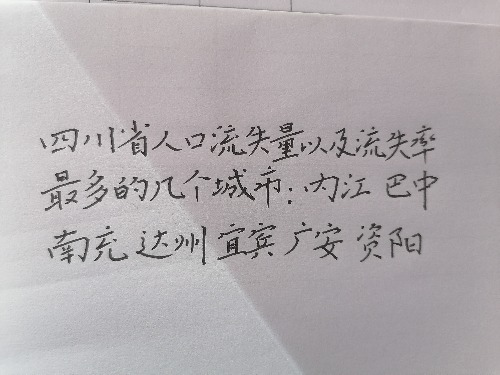 四川省人口流失量以及流失率
最多的几个城市：内江 巴中
南充 达州 宜宾 广安 资阳